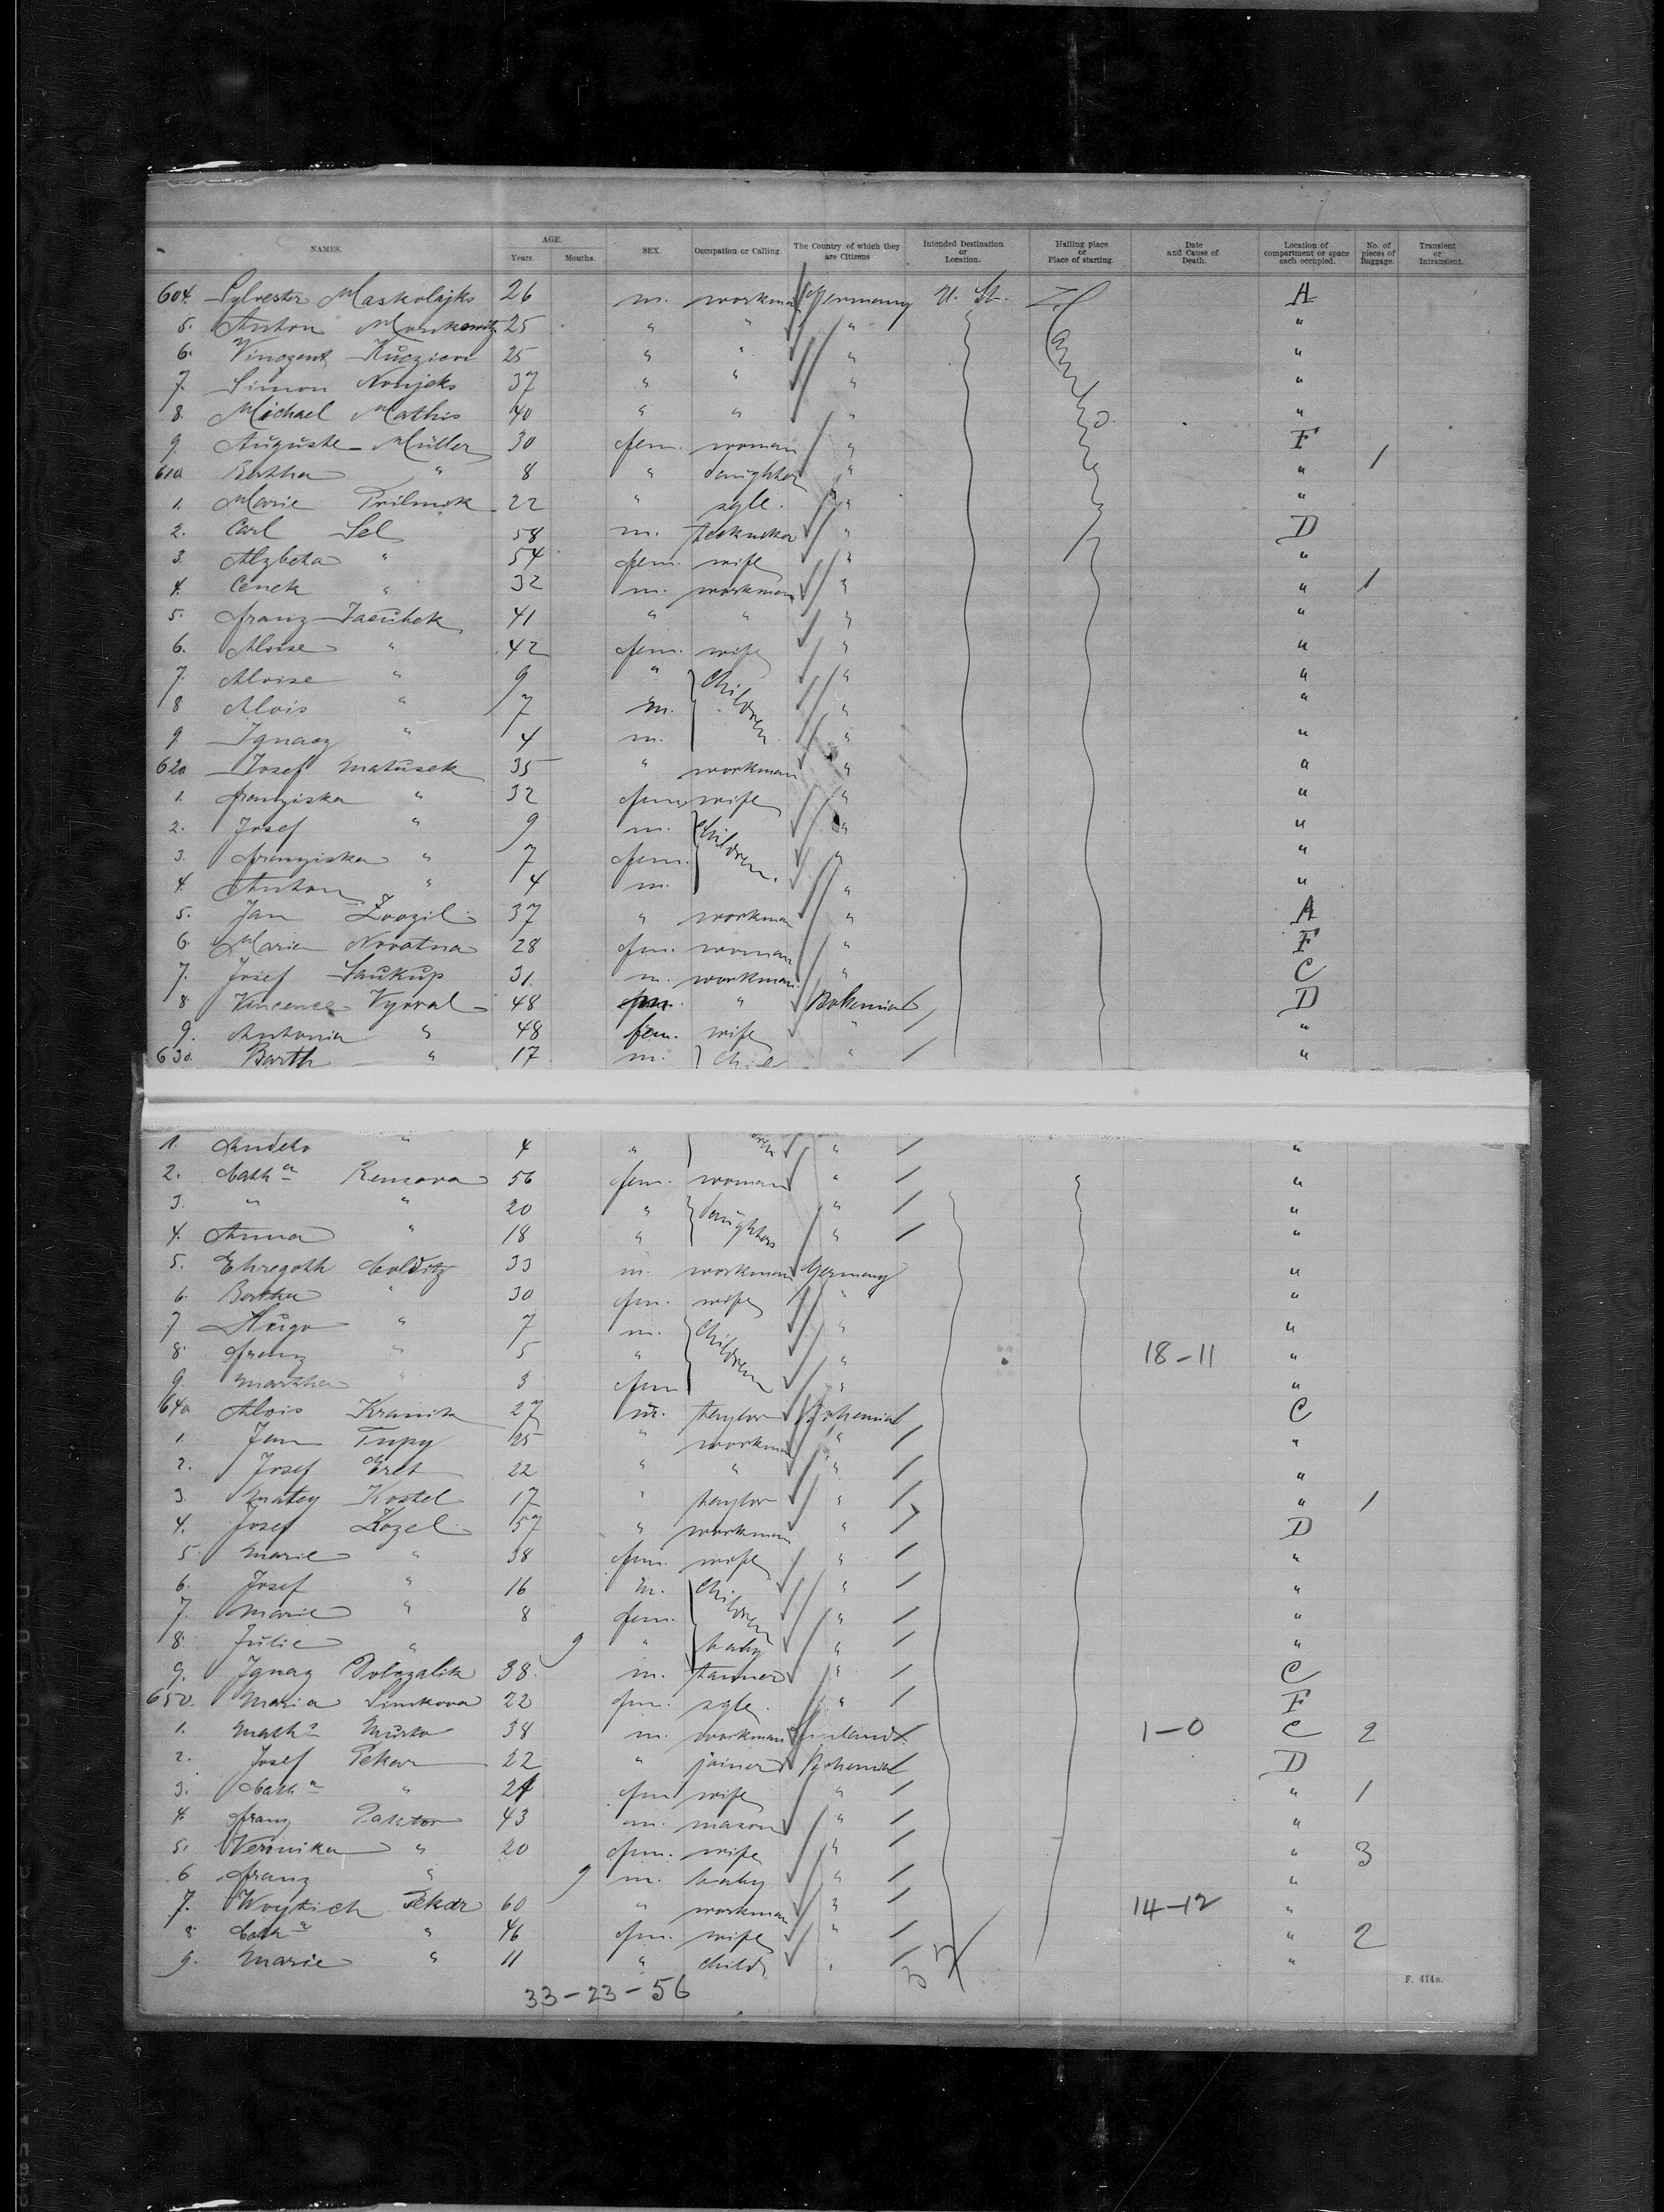 NAMES. AGE. Years. Months. SEX. Occupation or Calling. The Country of which they are Citizens Intended Destination or Location. Hailing place or Place of starting. Date and Cause of Death. Location of compartment or space each occupied. No. of pieces of Baggage. Transient or Intransient.
604. Sylvester Maskolajks 26 m. workman Germany U. St. Hamburg A
5. Anton 25 " " " "
6. Vinozent 25 " " " "
7. Simon 37 " " " "
8. Michael Mathis 40 " " " "
9. Auguste Müller 30 fem. woman " F
610 Bertha " 8 " daughter " " 1
1. Marie 22 " sgle. " "
2. Carl Sel 58 m. " D
3. Alzbeta " 54 fem. wife " "
4. Cenek " 32 m. workman " " 1
5. Franz 41 " " " "
6. Aloise " 42 fem. wife " "
7. Aloise " 9 " Children " "
8 Alois " 7 m. " "
9 Ignacz " 4 m. " "
620 Josef Matusek 35 " workman " "
1. Franziska " 32 fem. wife " "
2. Josef " 9 m. Children. " "
3. Franziska " 7 fem. " "
4. Anton " 4 m. " "
5. Jan 37 " workman " A
6. Marie Novotna 28 fem. woman " F
7. Josef Saukup 31. m. workman " C
8. Vincence Vyoral 48 " Bohemia D
9. Antonia " 48 fem. wife " "
630. Barth " 17 m. " "
1. " 4 " " "
2. Cath a 56 fem. woman " "
3. " " 20 " daughters " "
4. Anna " 18 " " "
5. Ehregott Colditz 33 m. workman Germany "
6. Bertha " 30 fem. wife " "
7 Hugo " 7 m. Children " "
8. Franz " 5 " " 18-11 "
9. Martha " 3 fem " "
640 Alois 27 m. taylor Bohemia C
1. Jan Tupy 25 " workman " "
2. Josef 22 " " " "
3. Matey Kostel 17 " taylor " " 1
4. Josef Kozel 37 " workman " D
5 Marie " 38 fem. wife " "
6. Josef " 16 m. Children " "
7. Marie " 8 fem. " "
8. Julie " 9 " baby " "
9. Ignaz 38. m. tanner " C
650. Maria Simkova 22 fem. sgle. " F
1. 38 m. workman Finland 1-0 C 2
2. Josef Pekar 22 " joiner Bohemia D
3. Cath a " 21 fem wife " " 1
4. Franz Paktor 43 m. mason " "
5. Veronika " 20 fem. wife " " 3
6 Franz " 9 m. baby " "
7. Woytich Pekar 60 " workman " 14-12 "
8 Cath a " 46 fem. wife " " 2
9. Marie " 11 " child " "
33-23-56
F. 414a.